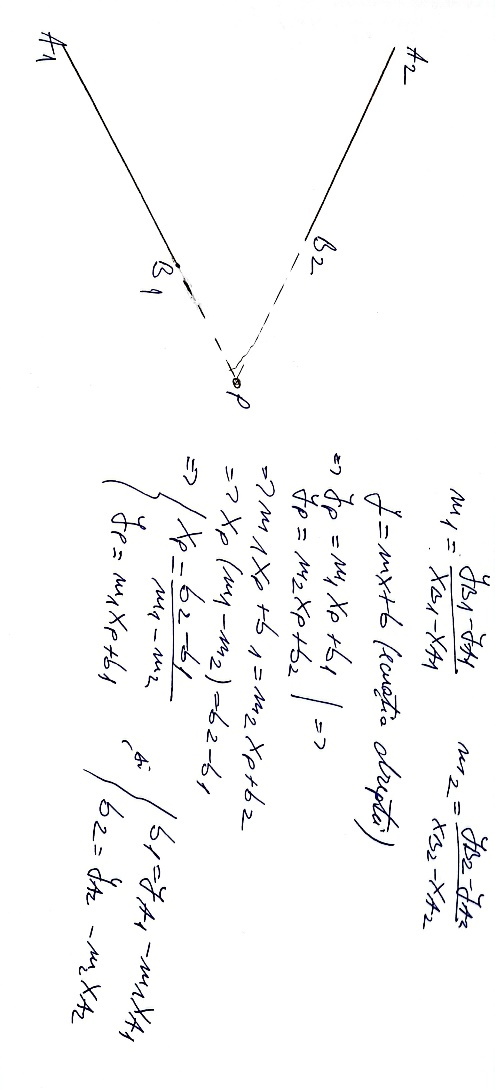 A1
A2
B1
B2
P
m1 = (yB1 - yA1) / (xB1 - xA1)
m2 = (yB2 - yA2) / (xB2 - xA2)
y = mx + b (ecuația dreptei)
=> yP = m1 xP + b1
yP = m2 xP + b2 | =>
=> m1 xP + b1 = m2 xP + b2
=> xP (m1 - m2) = b2 - b1
=> { xP = (b2 - b1) / (m1 - m2)
yP = m1 xP + b1
și { b1 = yA1 - m1 xA1
b2 = yA2 - m2 xA2